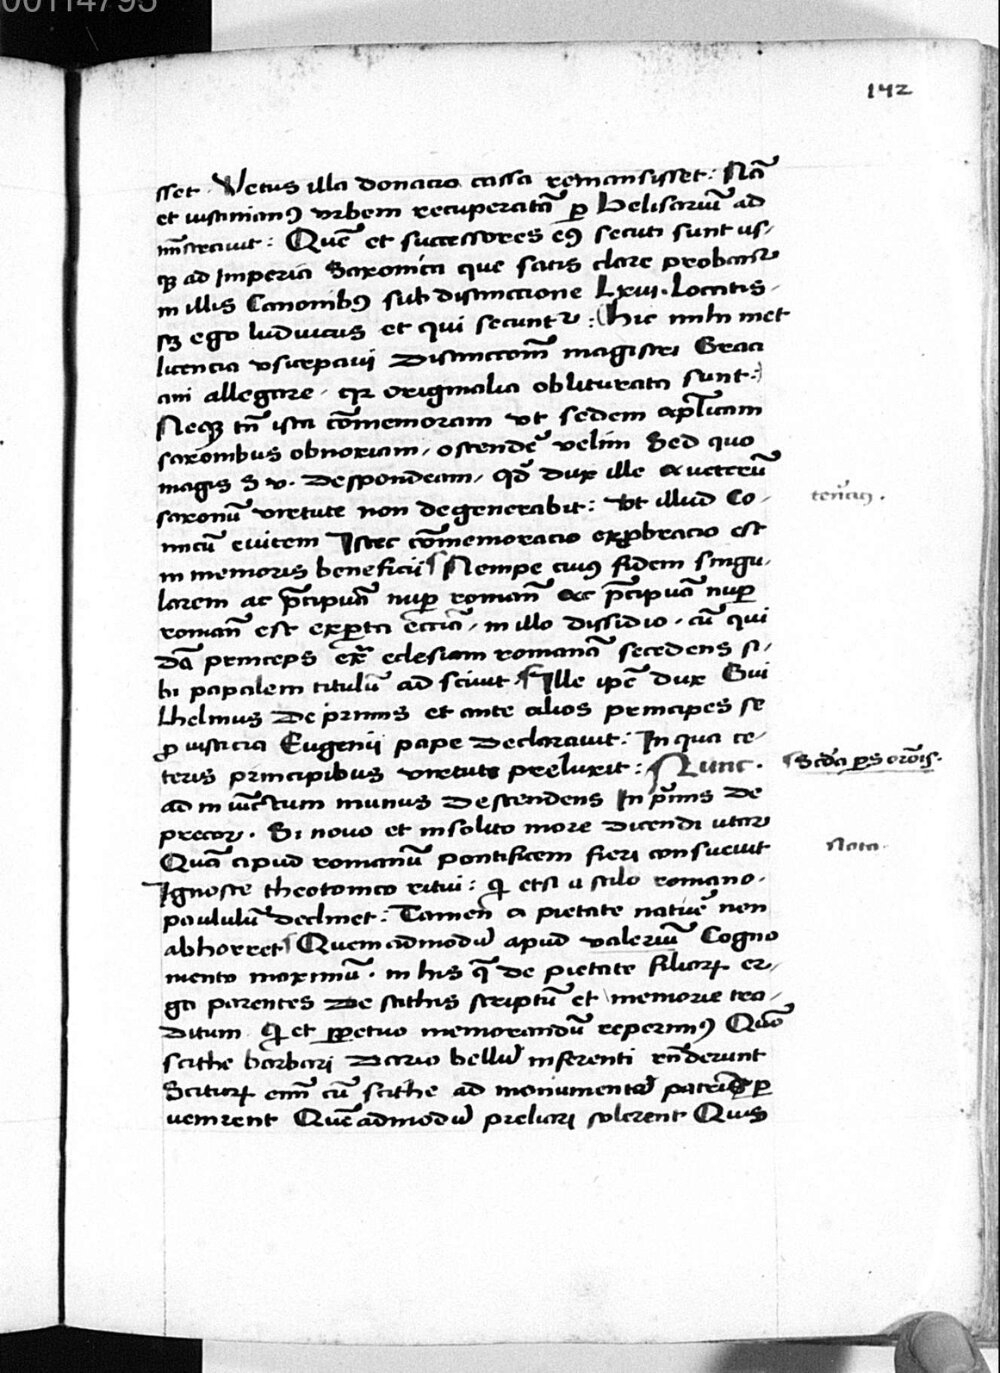 00114795
142
sset. Vetus illa donacio cassa remansisset: Nã
et iustinian9 vrbem recuperatã p Belisariũ ad
mĩstrauit: Quẽ et successores ei9 secuti sunt us/
q3 ad Imperiã Saxonicũ que satis clare probant᷑
in illis Canonib9 sub distinccione Lxiii. Loca
s3 ego luduicus et qui secunt᷑: (hic mihi met
licencia vsurpaui distinccom̃ magistri Graci
ani allegare, q2 originalia obliturata sunt:)
Neq3 tñ ista cõmemoram vt sedem aplicam
saxonibus obnoxiam, ostendẽ velim Sed quo
magis S v. despondeam, qd dux ille a veterũ
saxonũ virtute non degenerabit: Vt illud Co-
micũ euitem Istec cõmemoracio exprobracio est
in memoris beneficii Nempe cuius fidem singu,
larem ac p̃cipuã nup romañ ac p̃cipuã nup
romañ est experta eccĩa, in illo dissidio. cũ qui
dã princeps ex̃ eclesiam romanã secedens si/
bi papalem titulũ ad sciuit Ille ip̃e dux Gui
lhelmus de primis et ante alios principes se
p iusticia Eugenii pape declarauit: In qua ce/
teris principibus virtute preluxit: Nunc.
ad in iũctum munus descendens In p̃mis de
precor. Si nouo et insolito more dicendi utar
Quã apud romanũ pontificem fieri consueuit
Ignosce theotonico ritui: q etsi a stilo romano.
paululũ declinet: Tamen a pietate natiue non
abhorret Quemadmodũ apud valeriũ Cogno
mento maximũ. in his q̃ de pietate filior er,
ga parentes de scithis scriptũ et memorie tra,
ditum. q et ppetuo memorandũ reperim9 Quõ
scithe barbari dario bellũ inferenti rñderunt
Scitar em̃ cũ scithe ad monumenta patris p
uenirent Quẽadmodũ preliari solerent Quis
Sc̃da p̃s or̃õis.
Nota.